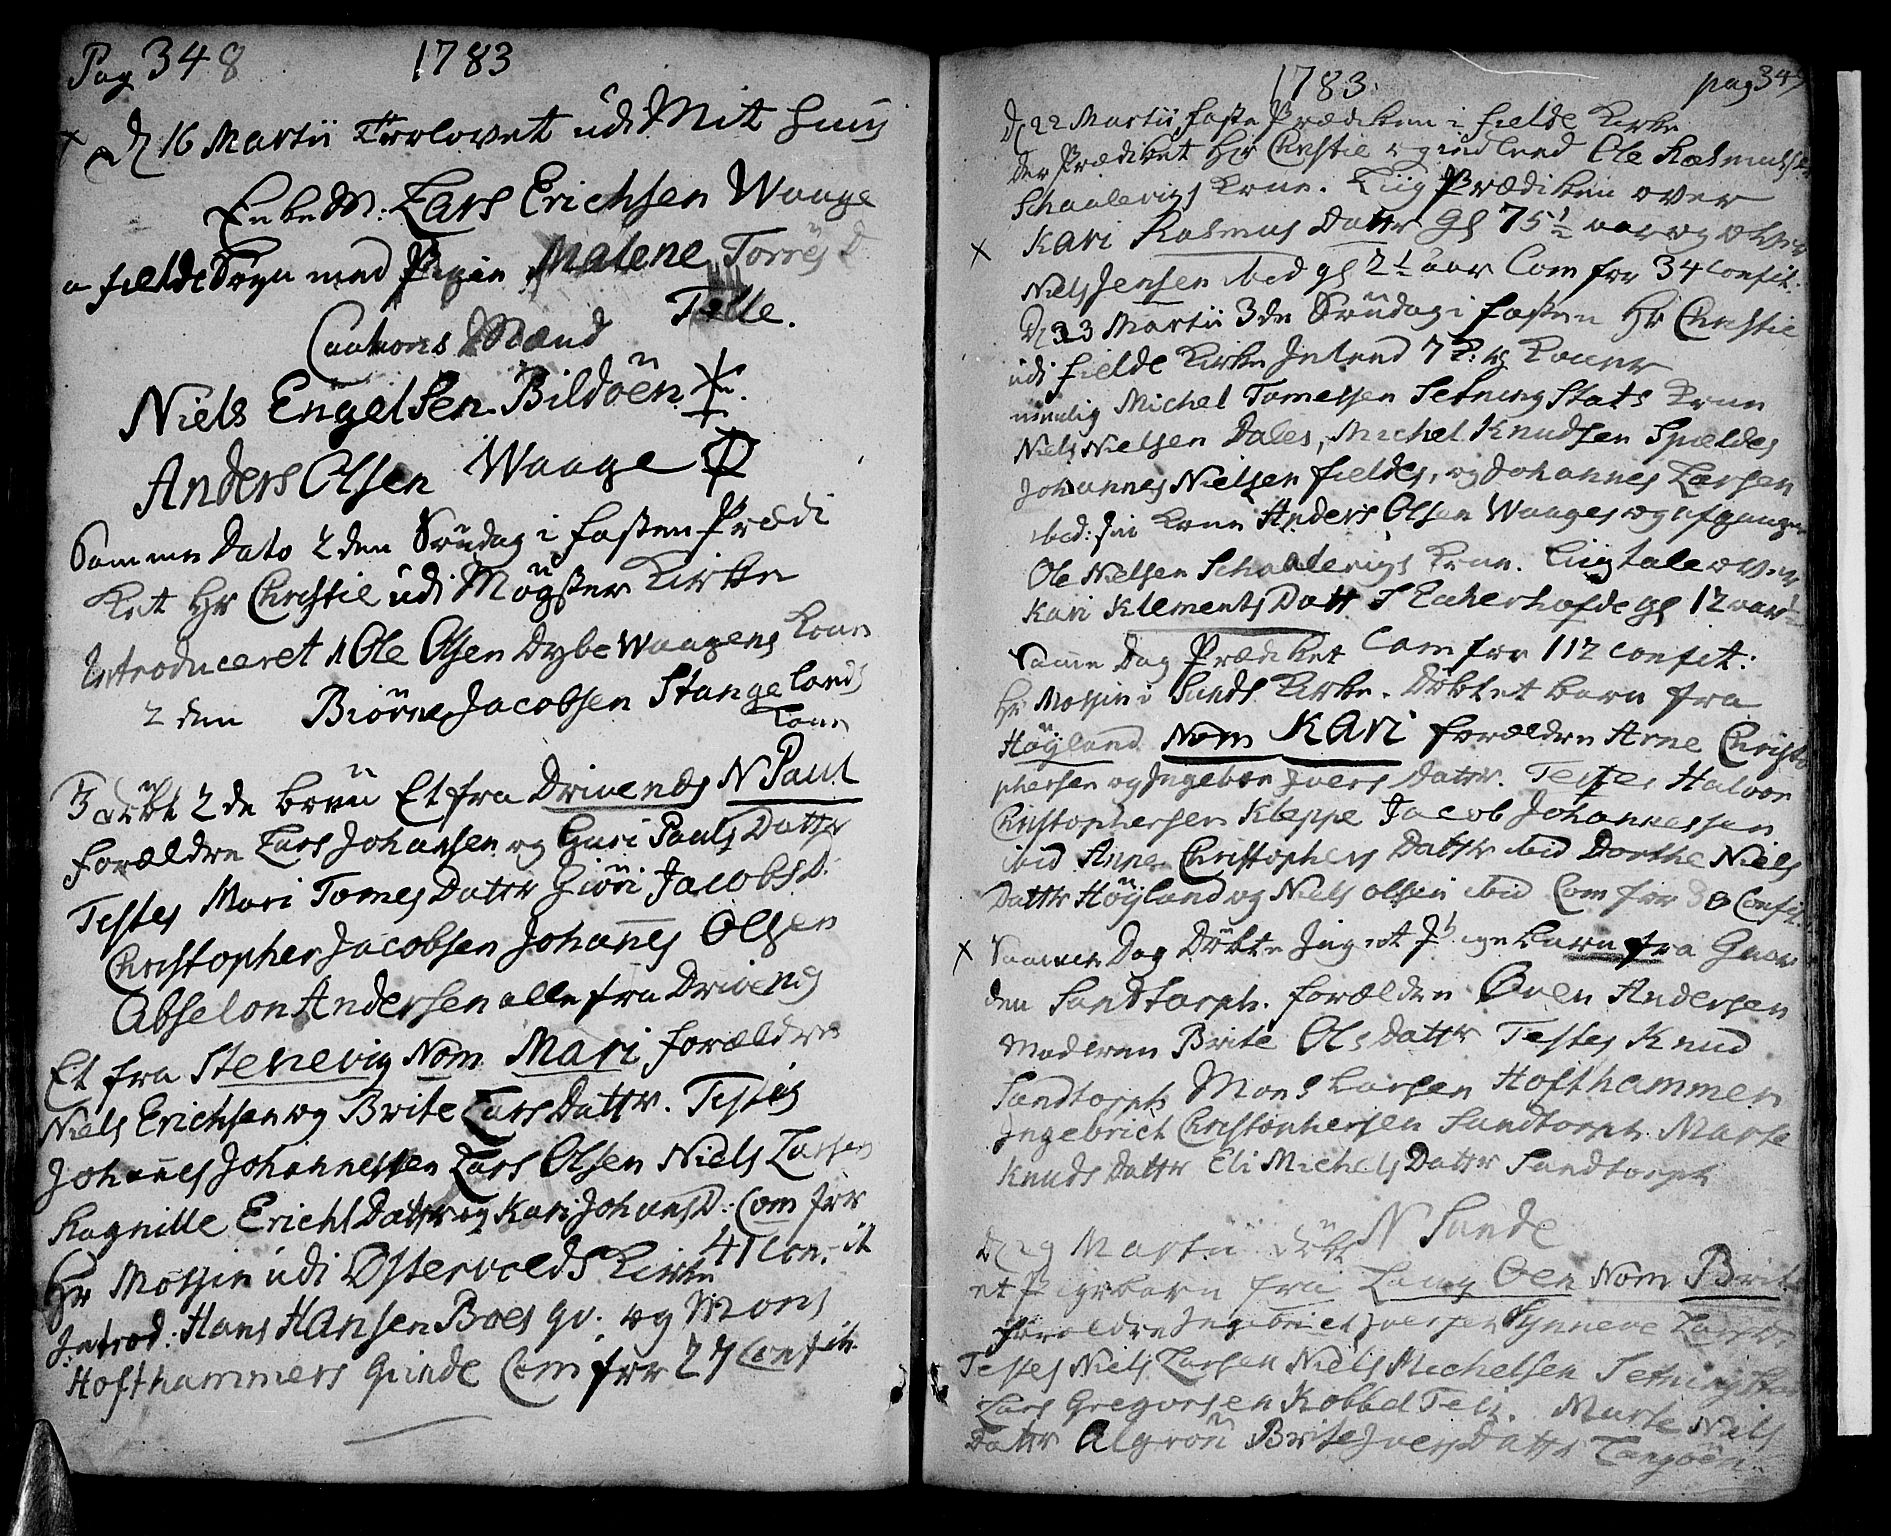 Pag 348 1783
D 16 Martii Trolovet udi Mit Huus
Enke M: Lars Erichsen Waage
a Fielde Sogn med Pigen Malene Torris D
Telle.
Cautions Mænd
Niels Engelsen Bildöen
Anders Olsen Waage
Samme Dato 2den Söndag i Fasten Prædi
ket Hr Christie udi Mögster Kirke
Introduceret 1 Ole Olsen Dybe Waagens Kone
2den Biörne Jacobsen Stangelands
Kone
3 döbt 2de börn Et fra Drivends N Paul
Forældre Lars Johansen og Guri Pauls Datter
Testes Mari Tomes Dattr Giöri Jacobs D:
Christopher Jacobsen Johanes Olsen
Abselon Andersen alle fra Drivend
Et fra Stenevig Nom Mari Forældre
Niels Erichsen og Brite Lars Dattr. Testes
Johanes Johannessen Lars Olsen Niels Larsen
Ragnille Erichs Dattr og Kari Johans D: Com for
41 Con-it
Hr Mossin udi Östervolds Kirke
Introd: Hans Hansen Boes qv. og Mons
Hofthammers Qvinde Com for 27 Confit.
1783. pag 349
D 22 Martii Faste Prædiken i Fielde Kirke
der Prædiket Hr Christie og indleed Ole Rasmussen
Schaalevigs Kone. Liig Prædiken over
Kari Rasmus Dattr gl 75 1/2 aar og over
Niels Jensen ibid gl 2 1/2 aar Com for 34 confit:
D 23 Martii 3de Söndag i Fasten Hr Christie
udi Fielde Kirke Inleed 7 Koner
nemlig Michel Tomessen Setning Stats Kone
Niels Nielsen Dales, Michel Knudsen Spieldes
Johannes Nielsen Fieldes, og Johannes Larsen
ibid: sin Kone Anders Olsen Waages og afgangne
Ole Nielsen Schaalevigs Kone. Liigtale over
Kari Klements Dattr Eckerhofde gl 12 aar 1/2
Samme Dag Prædiket Com for 112 confit:
Hr Mossin i Sunds Kirke. Döbtet barn fra
Höyland Nom Kari Forældre Arne Christo
phersen og Ingebor Ivers Dattr. Testes Halvor
Christophersen Kleppe Jacob Johannessen
ibid Anne Christophers Dattr ibid Dorthe Niels
Dattr Höyland og Niels Olsen ibid Com for 30 Confit.
Samme Dag Döbte Jeg et Pigebarn fra Gaar
den Sandtorph. Forældre Oven Andersen
Moderen Brite Ols Dattr Testes Knud
Sandtorph Mons Larsen Hofthammer
Ingebrich Christophersen Sandtorph Marte
Knuds Dattr Eli Michels Dattr Sandtorph
N Sunde
D 29 Martii döbt
et Pigebarn fra Lang Öen Nom Brite
Forældre Ingebricht Iversen Synneve Lars D
Testes Niels Larsen Niels Michelsen Setningstad
Lars Gregorsen Kobbel Teli. Marte Niels
Dattr Algröu Brite Ivers Dattr Langöen